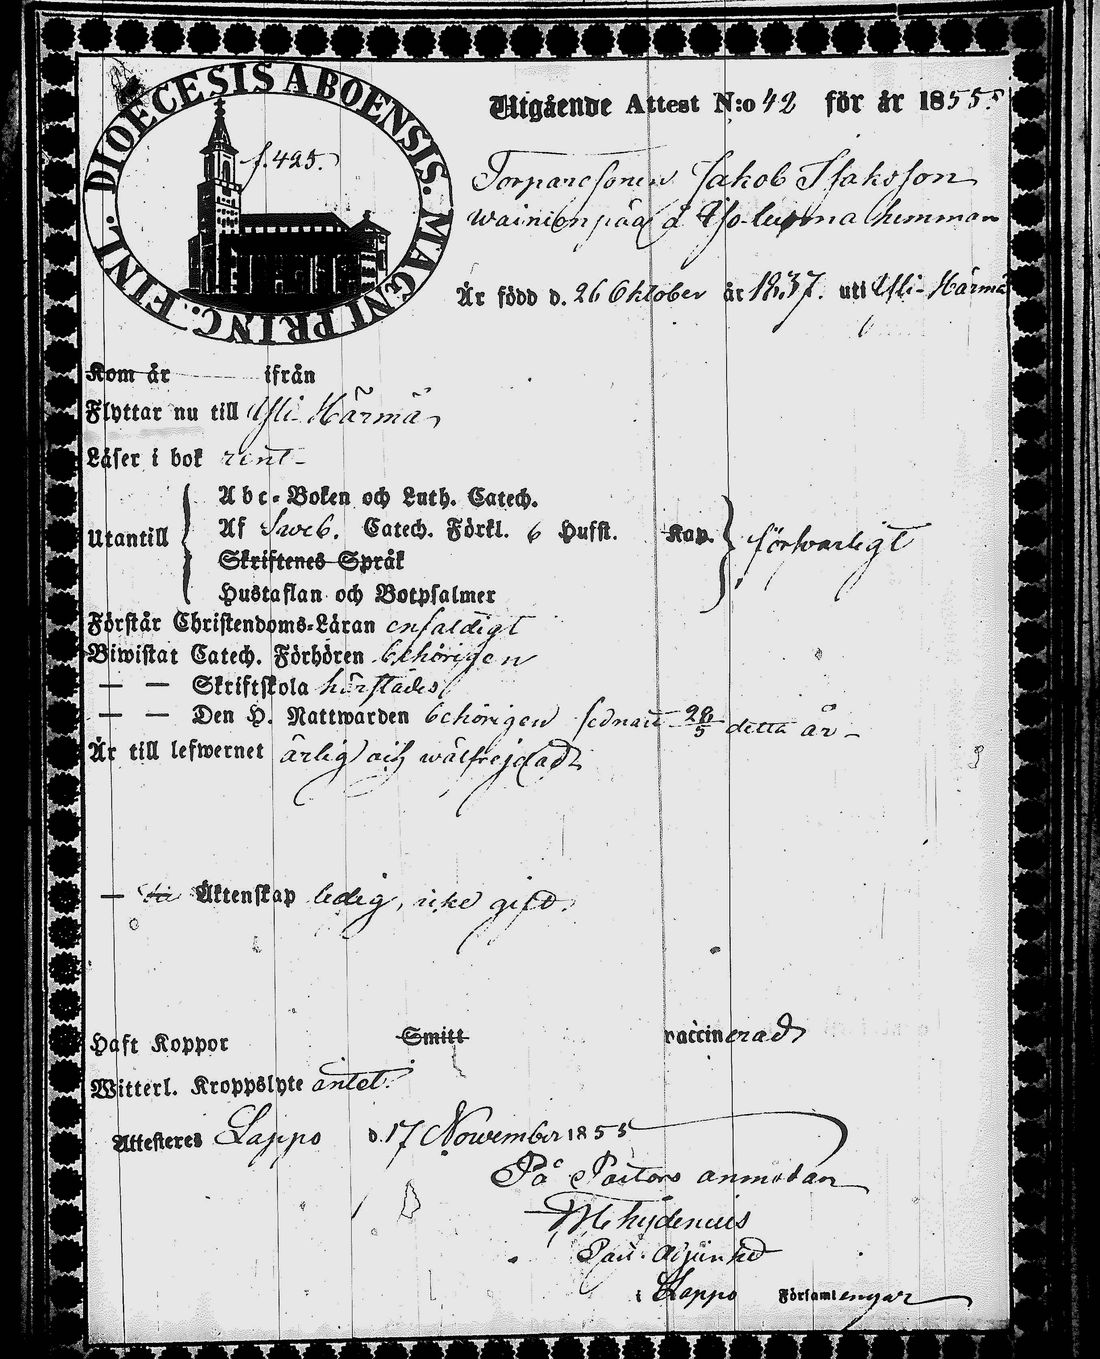 DIOECESIS ABOENSIS. MAGNI PRINC. FINL.
f. 425.
Utgående Attest N:o 42 för år 1855.
Torparesonen Jakob Isaksson
wainionpää å hemman
Är född d. 26 Oktober år 1837. uti Ylihärmä
Kom år ifrån
Flyttar nu till Yli-Härmä
Läser i bok rent
Abc-Boken och Luth. Catech.
Utantill Af Sweb. Catech. Förkl. 6 Hufst. Kap. försvarligt
Skriftenes Språk
Hustaflan och Botpsalmer
Förstår Christendoms-Läran enfaldigt
Biwistat Catech. Förhören behörigen
— — Skriftskola härstädes
— — Den H. Nattwarden behörigen sednast 28/5 detta år
Är till lefwernet ärlig och wälfrejdad
— Äktenskap ledig, icke gift.
Haft Koppor Smitt vaccinerad
Witterl. Kroppslyte intet.
Attesteres Lappo d. 17 November 1855
På Pastors anmodan
Past. Adjunkt
i Lappo Församlingar